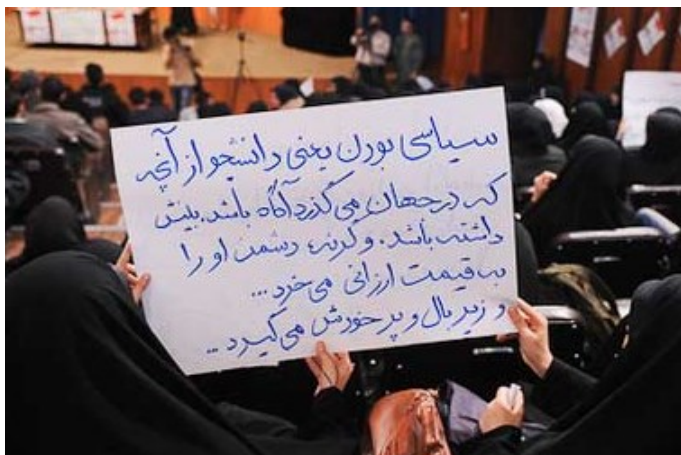 سیاسی بودن یعنی دانشجو از آنچه
که در جهان می گذرد آگاه باشد. بینش
داشته باشد. وگرنه دشمن او را
به قیمت ارزانی می خرد ...
و زیر بال و پر خودش می گیرد ...